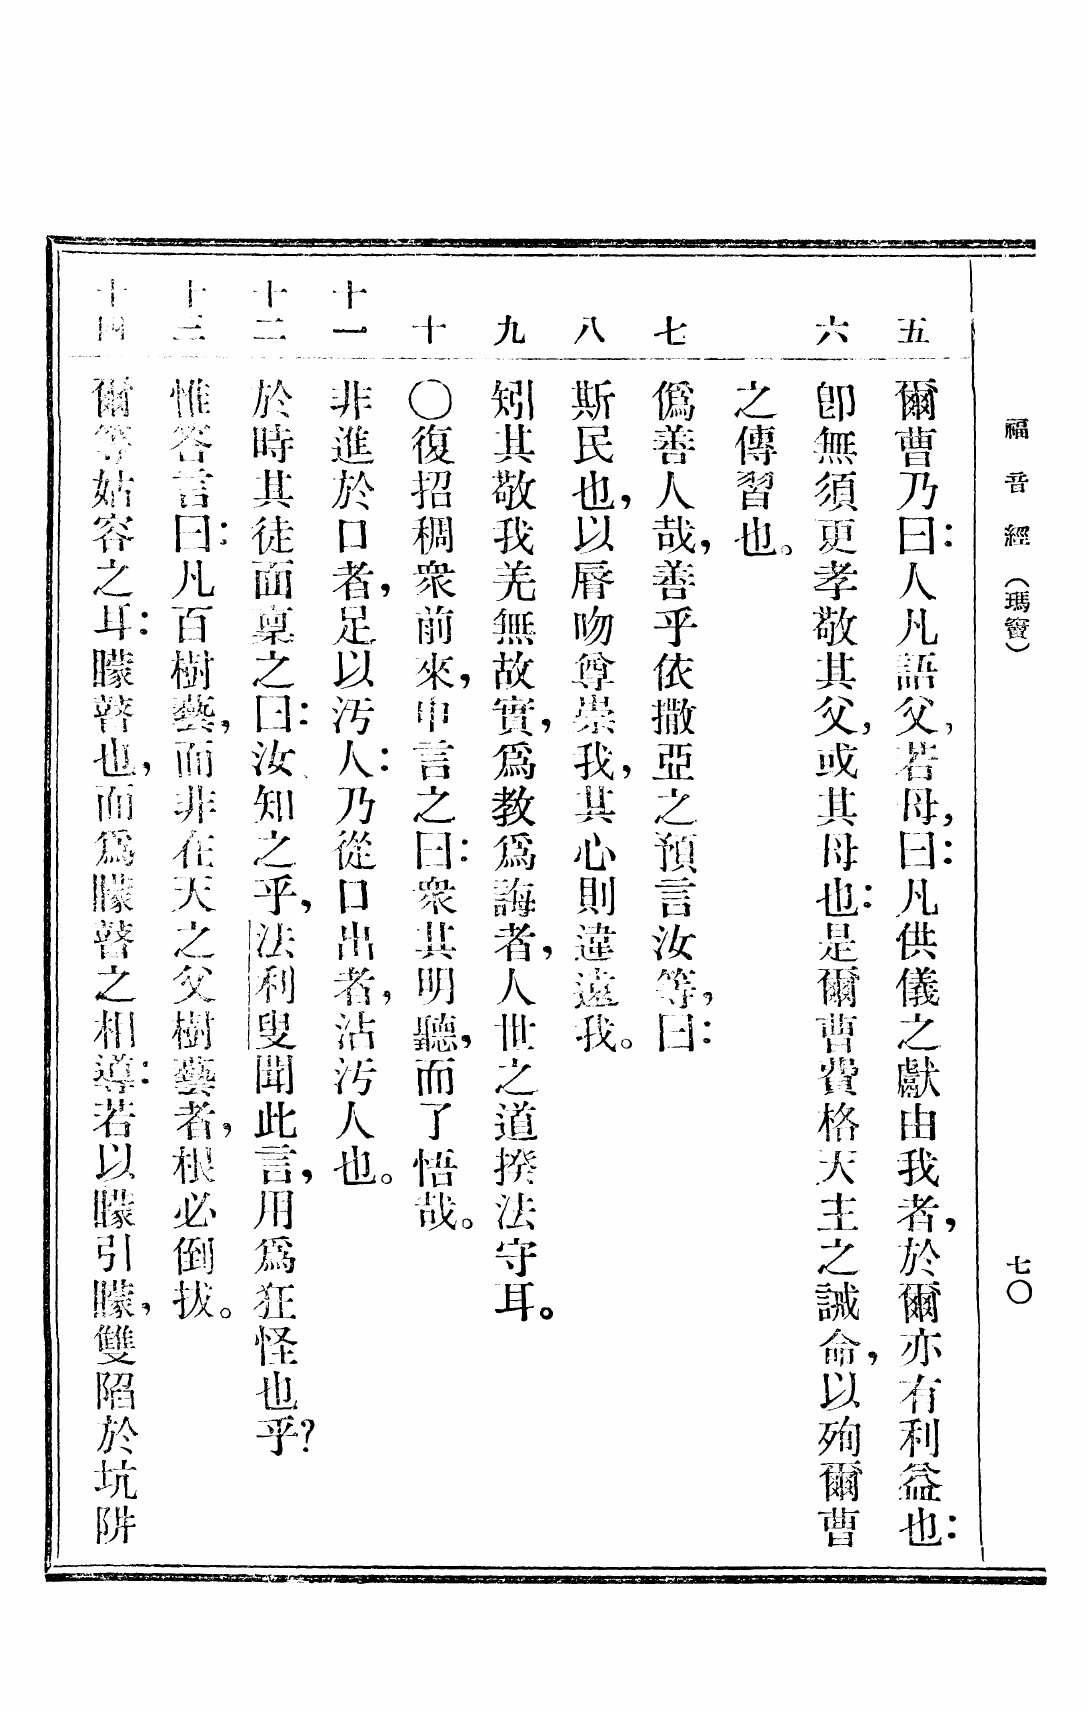 福音經（瑪竇）
七〇
五 爾曹乃曰：人凡語父，若母，曰：凡供儀之獻由我者，於爾亦有利益也：
六 卽無須更孝敬其父，或其母也：是爾曹費格天主之誡命，以殉爾曹
之傳習也。
七 僞善人哉，善乎依撒亞之預言汝等，曰：
八 斯民也，以脣吻尊崇我，其心則違遠我。
九 矧其敬我羌無故實，爲教爲誨者，人世之道揆法守耳。
十 〇復招稠衆前來，申言之曰：衆其明聽，而了悟哉。
十一 非進於口者，足以汚人：乃從口出者，沾汚人也。
十二 於時其徒面稟之曰：汝知之乎，法利叟聞此言，用爲狂怪也乎？
十三 惟答言曰：凡百樹藝，而非在天之父樹藝者，根必倒拔。
十四 爾等姑容之耳：矇瞽也，而爲矇瞽之相導：若以矇引矇，雙陷於坑阱